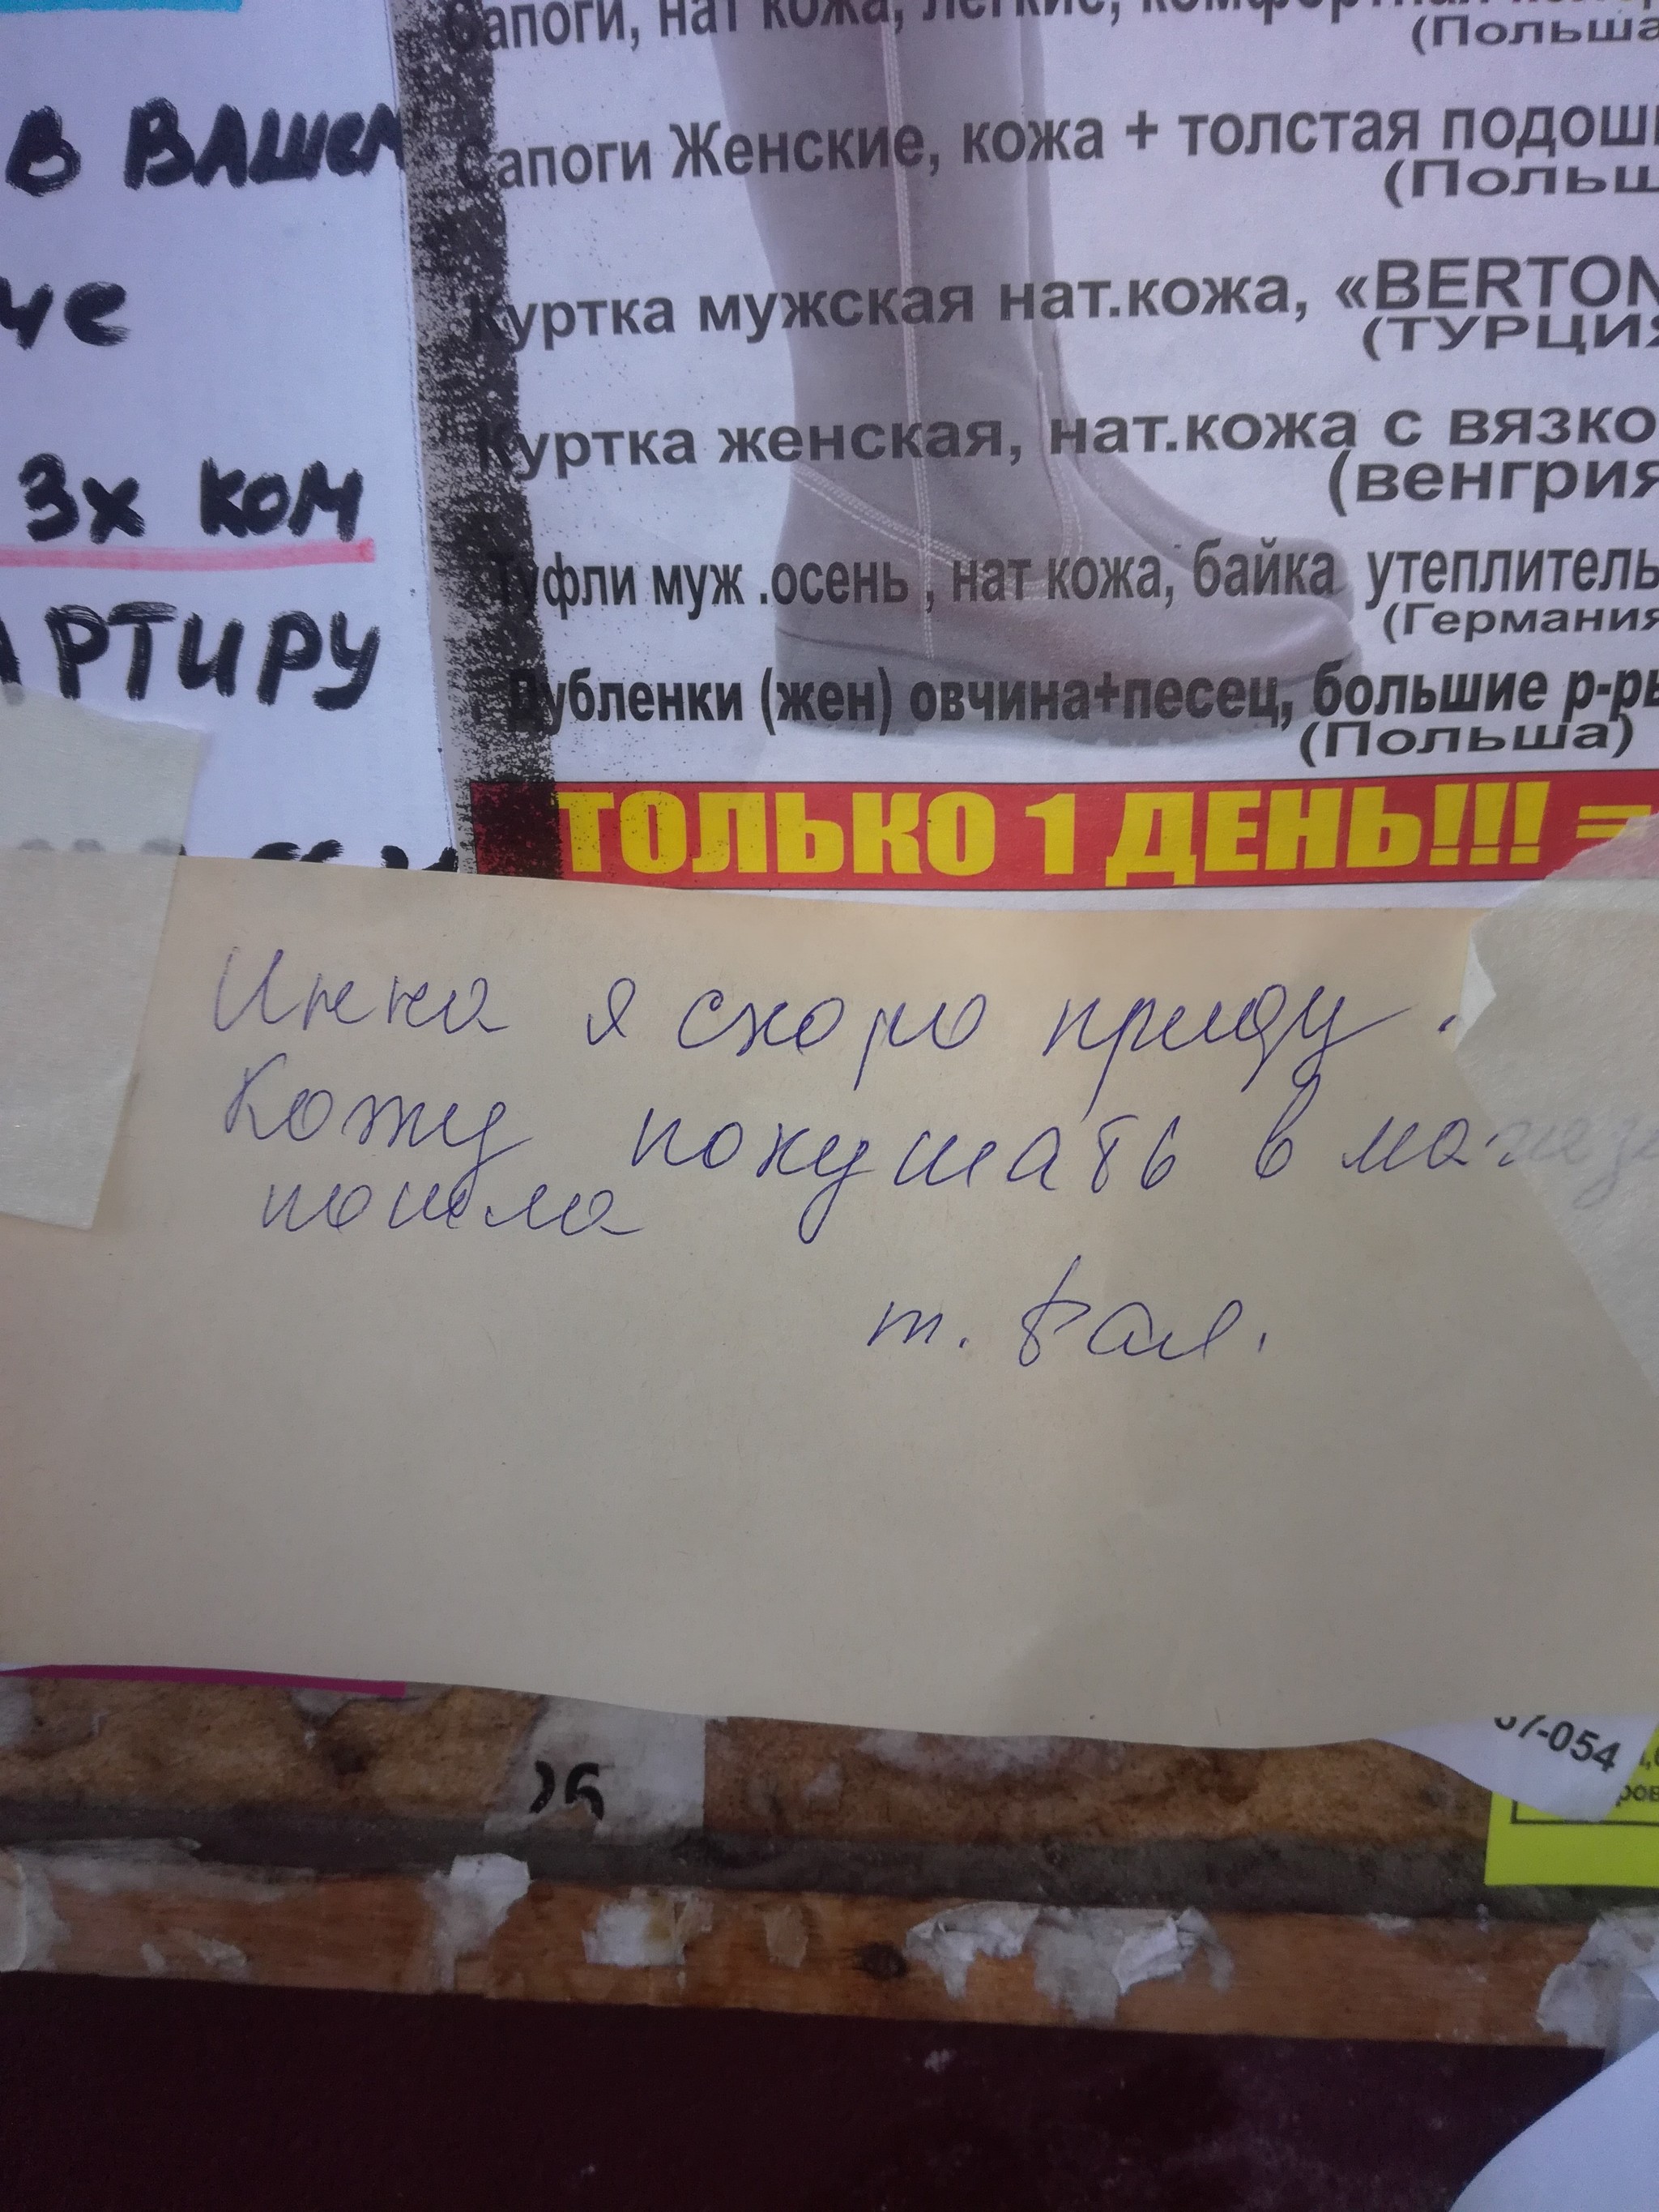 в вашем
че
3х ком
АРТИРУ
Сапоги, нат кожа, легкие, комфортная
(Польша
Сапоги Женские, кожа + толстая подош
(Польш
Куртка мужская нат.кожа, «BERTON
(ТУРЦИЯ
Куртка женская, нат.кожа с вязко
(венгрия
Туфли муж .осень , нат кожа, байка утеплитель
(Германия
Дубленки (жен) овчина+песец, большие р-ры
(Польша)
ТОЛЬКО 1 ДЕНЬ!!! =
Инна я скоро приду.
Кожу покушать в магаз
пошла
т. Вал.
57-054